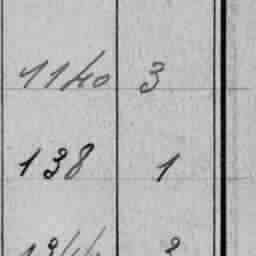 1140 3
138 1